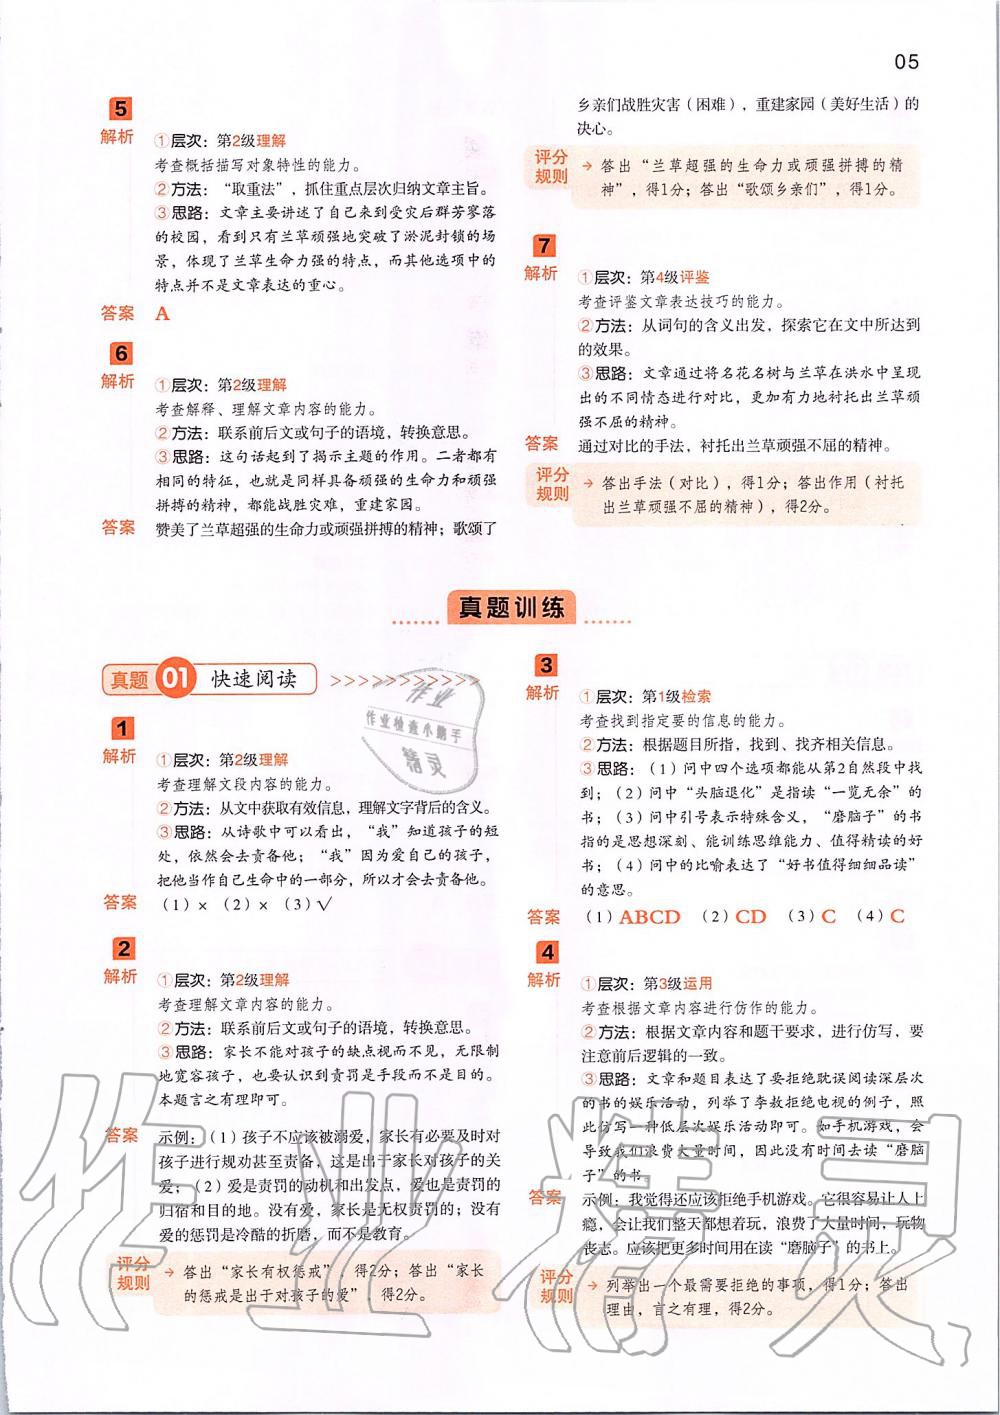 05
5
解析
①层次：第2级理解
考查概括描写对象特性的能力。
②方法：“取重法”，抓住重点层次归纳文章主旨。
③思路：文章主要讲述了自己来到受灾后群芳寥落
的校园，看到只有兰草顽强地突破了淤泥封锁的场
景，体现了兰草生命力强的特点，而其他选项中的
特点并不是文章表达的重心。
答案 A
6
解析
①层次：第2级理解
考查解释、理解文章内容的能力。
②方法：联系前后文或句子的语境，转换意思。
③思路：这句话起到了揭示主题的作用。二者都有
相同的特征，也就是同样具备顽强的生命力和顽强
拼搏的精神，都能战胜灾难，重建家园。
答案 赞美了兰草超强的生命力或顽强拼搏的精神；歌颂了
乡亲们战胜灾害（困难），重建家园（美好生活）的
决心。
评分
规则
→ 答出“兰草超强的生命力或顽强拼搏的精
神”，得1分；答出“歌颂乡亲们”，得1分。
7
解析
①层次：第4级评鉴
考查评鉴文章表达技巧的能力。
②方法：从词句的含义出发，探索它在文中所达到
的效果。
③思路：文章通过将名花名树与兰草在洪水中呈现
出的不同情态进行对比，更加有力地衬托出兰草顽
强不屈的精神。
答案 通过对比的手法，衬托出兰草顽强不屈的精神。
评分
规则
→ 答出手法（对比），得1分；答出作用（衬托
出兰草顽强不屈的精神），得2分。
真题训练
真题 01 快速阅读
1
解析
①层次：第2级理解
考查理解文段内容的能力。
②方法：从文中获取有效信息，理解文字背后的含义。
③思路：从诗歌中可以看出，“我”知道孩子的短
处，依然会去责备他；“我”因为爱自己的孩子，
把他当作自己生命中的一部分，所以才会去责备他。
答案 （1）× （2）× （3）√
2
解析
①层次：第2级理解
考查理解文章内容的能力。
②方法：联系前后文或句子的语境，转换意思。
③思路：家长不能对孩子的缺点视而不见，无限制
地宽容孩子，也要认识到责罚是手段而不是目的。
本题言之有理即可。
答案 示例：（1）孩子不应该被溺爱，家长有必要及时对
孩子进行规劝甚至责备，这是出于家长对孩子的关
爱；（2）爱是责罚的动机和出发点，爱也是责罚的
归宿和目的地。没有爱，家长是无权责罚的；没有
爱的惩罚是冷酷的折磨，而不是教育。
评分
规则
→ 答出“家长有权惩戒”，得2分；答出“家长
的惩戒是出于对孩子的爱”，得2分。
3
解析
①层次：第1级检索
考查找到指定要的信息的能力。
②方法：根据题目所指，找到、找齐相关信息。
③思路：（1）问中四个选项都能从第2自然段中找
到；（2）问中“头脑退化”是指读“一览无余”的
书；（3）问中引号表示特殊含义，“磨脑子”的书
指的是思想深刻、能训练思维能力、值得精读的好
书；（4）问中的比喻表达了“好书值得细细品读”
的意思。
答案 （1）ABCD （2）CD （3）C （4）C
4
解析
①层次：第3级运用
考查根据文章内容进行仿作的能力。
②方法：根据文章内容和题干要求，进行仿写，要
注意前后逻辑的一致。
③思路：文章和题目表达了要拒绝耽误阅读深层次
的书的娱乐活动，列举了李敖拒绝电视的例子，照
此仿写一种低层次娱乐活动即可。如手机游戏，会
导致我们浪费大量时间，因此没有时间去读“磨脑
子”的书。
答案 示例：我觉得还应该拒绝手机游戏。它很容易让人上
瘾，会让我们整天都想着玩，浪费了大量时间，玩物
丧志。应该把更多时间用在读“磨脑子”的书上。
评分
规则
→ 列举出一个最需要拒绝的事项，得1分；答出
理由，言之有理，得2分。
作业
作业检查小助手
精灵
作业精灵